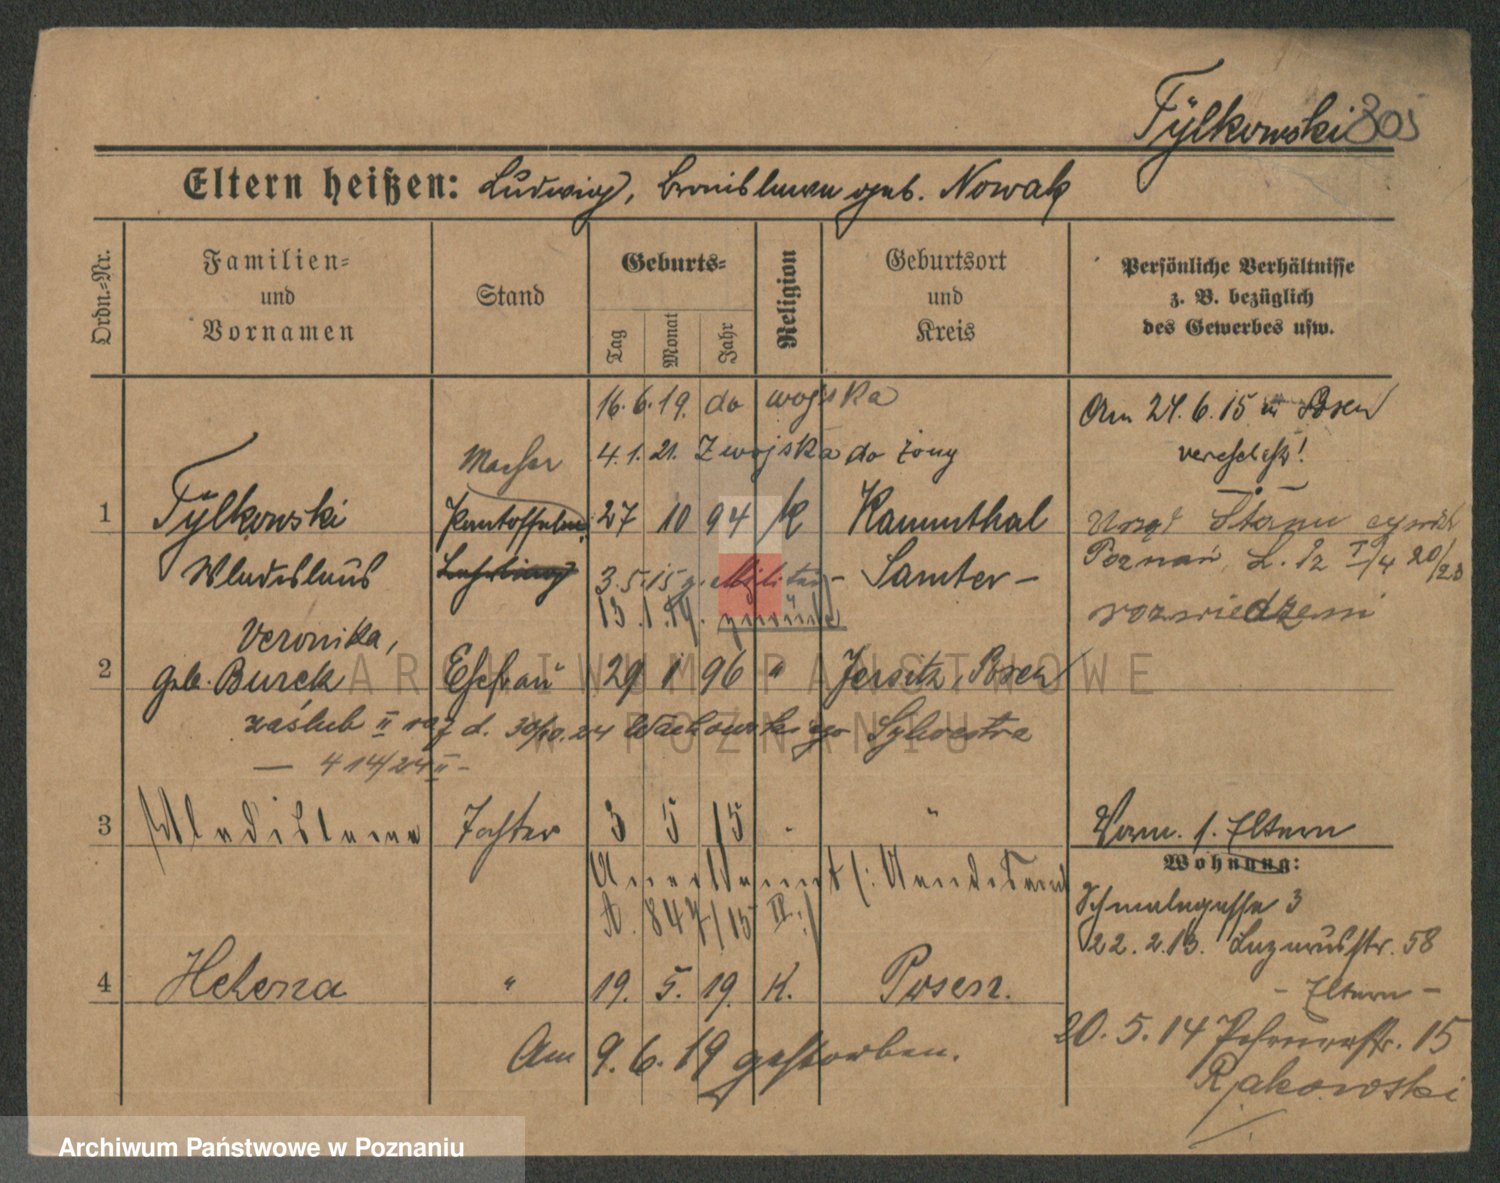 Tÿlkowski 305
Eltern heißen: Ludwig, Bronislawa geb. Nowak
Ordn.-Nr.
Familien- und Vornamen
Stand
Geburts-
Tag
Monat
Jahr
Religion
Geburtsort und Kreis
Persönliche Verhältnisse z. B. bezüglich des Gewerbes usw.
16. 6. 19. do wojska
4. 1. 21. Z wojska do żony
Am 24. 6. 15 in Posen
verehelicht!
1 Tÿlkowski Pantoffelm. 27 10 94 k Kammthal
Wladislaus
3. 5. 15 z. Militär - Samter -
13. 1. 19. zurück
Urząd Stanu cywil
Poznań, L. Iz 20/23
rozwiedzeni
Veronika,
2 geb. Burek Ehefrau 29 1 96 " Jersitz, Posen
zaślub II raz d. 30/10.24 Wachowskiego Sylvestra
— 414/24 II -
3 Wladislawa Tochter 3 5 15 - "
Vorm. 1. Eltern
Wohnung:
A. 847/15 II :/
Schmalegasse 3
22. 2. 13. Lazarusstr. 58
4 Helena " 19. 5. 19. K. Posen.
- Eltern -
Am 9. 6. 19 gestorben.
20. 5. 14 15
Rakowski
ARCHIWUM PAŃSTWOWE
W POZNANIU
Archiwum Państwowe w Poznaniu